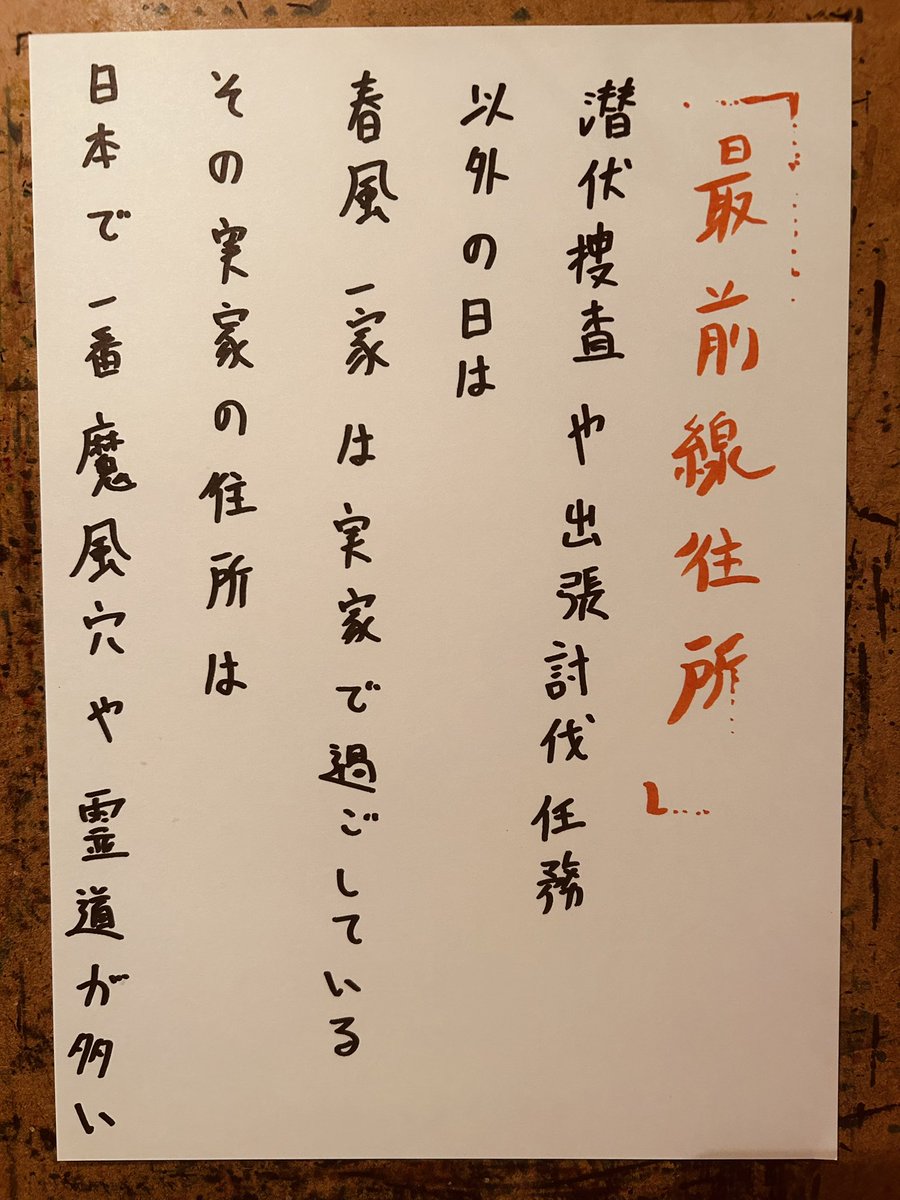 「最前線住所」
潜伏捜査や出張討伐任務
以外の日は
春風一家は実家で過ごしている
その実家の住所は
日本で一番魔風穴や霊道が多い